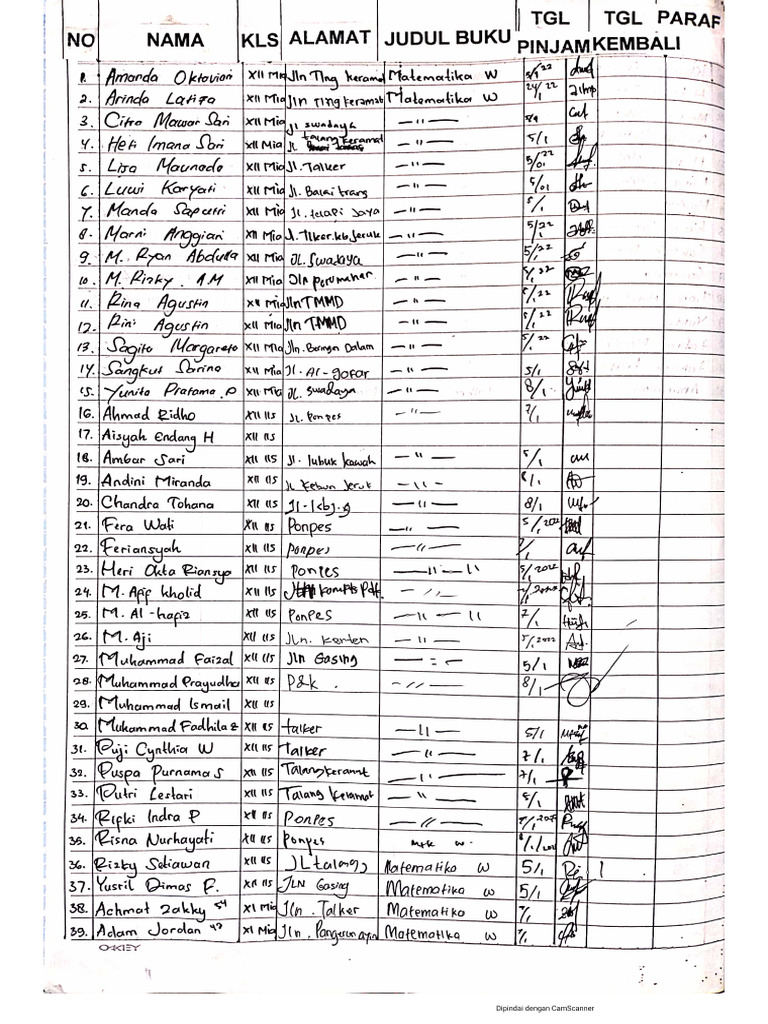 NO NAMA KLS ALAMAT JUDUL BUKU TGL PINJAM TGL KEMBALI PARAF
1. Amanda Oktovian XII Mia Jln Tlng keramat Matematika W 5/1 22
2. Arinda Latifa XII Mia Jln Tlng keramat Matematika W 24/1 22
3. Citra Mawar Sari XII Mia Jl swadaya — " — 5/1
4. Heti Imana Sari XII Mia Jl. talang keramat — " — 5/1
5. Lisa Maunado XII Mia Jl. Talker — " — 5/01 22
6. Luwi Karyati XII Mia Jl. — " — 5/01
7. Manda Saputri XII Mia Jl. Jaya — " — 5/1
8. Marni Anggian XII Mia Jl. Tlker. kb. Jeruk — " — 5/22 1
9. M. Ryan Abdulla XII Mia JL. Swadaya — " — 5/22 1
10. M. Rizky. A M XII Mia Jln perumahar — " — 5/1 22
11. Rina Agustin XII Mia Jln TMMD — " — 5/1 22
12. Rini Agustin XII Mia Jln TMMD — " — 5/1 22
13. Sagita Margareto XII Mia Jln. Beringin Dalam — " — 5/1 22
14. Sangkut Sarina XII Mia Jl. Al-gofar — " — 5/1
15. Yunita Pratama. P XII Mia JL. Swadaya — " — 8/1
16. Ahmad Ridho XII IIS JL. Ponpes — " — 7/1
17. Aisyah Endang H XII IIS
18. Ambar Sari XII IIS Jl. lubuk kawah — " — 5/1
19. Andini Miranda XII IIS JL Kebun Jeruk — " — 8/1
20. Chandra Tohana XII IIS — " — 8/1
21. Fera Wati XII IIS Ponpes — " — 5/1 2022
22. Feriansyah XII IIS Ponpes — " — 7/1
23. Heri Okta Riansya XII IIS Ponpes — " — " 5/1 2022
24. M. Afif kholid XII IIS komplks — " —
25. M. Al-hafiz XII IIS Ponpes — " — " 7/1
26. M. Aji XII IIS Jln. Kenten — " — 5/1 2022
27. Muhammad Faizal XII IIS Jln Gasing — " — 5/1
28. Muhammad Prayudha XII IIS P&k. — " — 8/1
29. Muhammad Ismail XII IIS
30. Muhammad Fadhila z XII IIS talker — " — 5/1
31. Puji Cynthia W XII IIS Talker — " — 7/1
32. Puspa Purnama S XII IIS Talang keramat — " — 7/1
33. Putri Lestari XII IIS Talang Kelamat — " — 8/1
34. Rifki Indra P XII IIS Ponpes — " —
35. Risna Nurhayati XII IIS Ponpes mtk w.
36. Rizky Setiawan XII IIS JL talang Matematika W 5/1
37. Yusril Dimas F. XII IIS JLN Gasing Matematika W 5/1
38. Achmat Zakky 54 XI Mia Jln. Talker Matematika W 7/1
39. Adam Jordan XI Mia Jln. Matematika W 7/1
OKEY
Dipindai dengan CamScanner